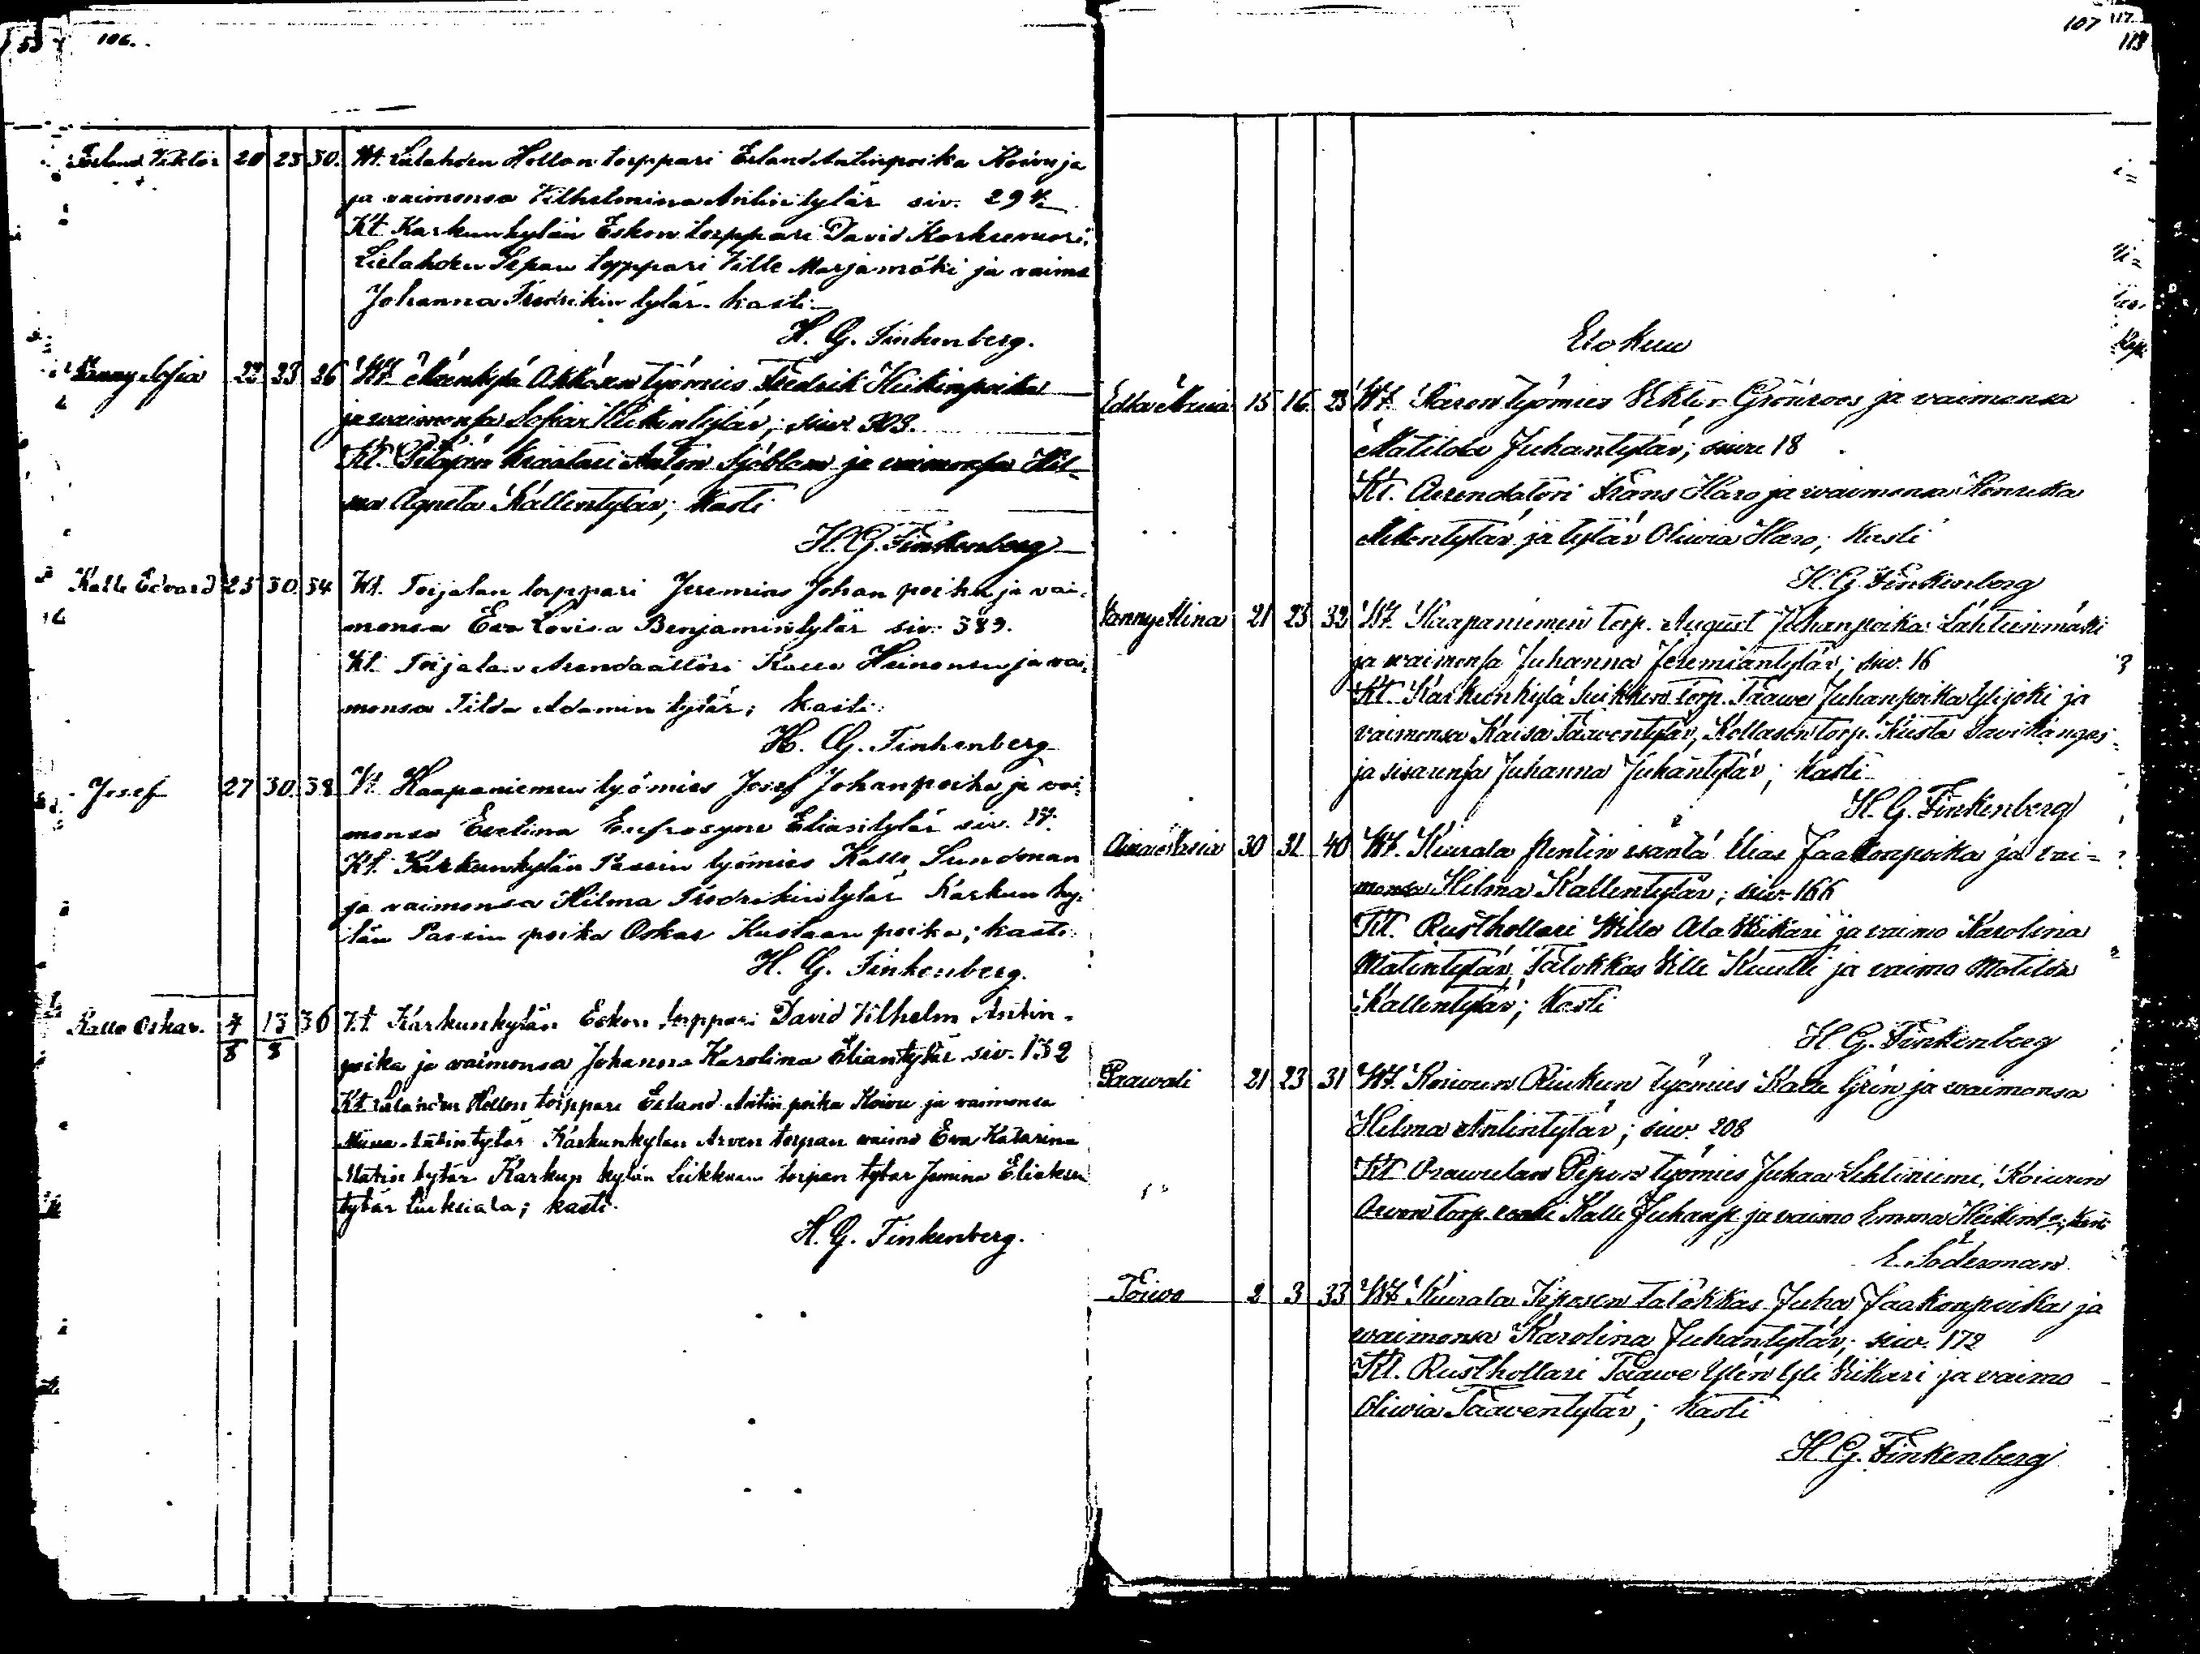 106.
Erland Viktor 20 23 30. Wt. Lielahden Hollon torppari Erland Antinpoika Koivu ja
ja vaimonsa Vilhelmina Antintytär siv. 294.
Kt. Karkunkylän Eskon torppari David Koskivuori,
Lielahden Sepän torppari Ville Marjamäki ja vaimo
Johanna Fredrikin tytär. kasti.
H. G. Finkenberg.
Fanny Sofia 22 23 26 Wt. Mäenkpä Akkasen työmies Fredrik Heikinpoika
ja waimonsa Sofia Heikintytär; siw. 303.
Kt. Pitäjän kraatari Anton Sjöblom ja vaimonsa Hil-
ma Agneta Kallentytär; kasti
H. G. Finkenberg
Kalle Edvard 25 30. 34 Wt. Toijalan torppari Jeremias Johan poika ja vai-
monsa Eva Lovisa Benjamintytär siv. 389.
Kt. Toijalan Arendaattori Kalle Heinonen ja vai-
monsa Tilda Adamin tytär; kasti.
H. G. Finkenberg
Josef 27 30. 38 Vt. Haapaniemen työmies Josef Johanpoika ja vai-
monsa Evelina Eufrosyne Eliasitytär siv. 17.
Kt. Karkunkylän Passin työmies Kalle Sundman
ja vaimonsa Hilma Fredrikintytär Karkun ky-
län Passin poika Oskar Kustaan poika; kasti.
H. G. Finkenberg.
Kalle Oskar. 4/8 13/8 36 Vt. Karkunkylän Eskon torppari David Vilhelm Antin-
poika ja vaimonsa Johanna Karolina Eliantytär siv. 132
Kt. Lielahden Hollon torppari Erland Antin poika Koivu ja vaimonsa
Miina Antintytär Karkunkylän Arven torpan vaimo Eva Katarina
Matin tytär Karkun kylän Liikkaan torpan tytär Jemina Eliaksen
tytär kasti.
H. G. Finkenberg.
107
117
113
Elokuu
Edla Maria 15 16. 23 Wt. työmies Viktor Grönroos ja vaimonsa
Matilda Juhantytär; siwu 18
Kt. Arrendatori Frans Haro ja waimonsa Henrika
tytär ja tytär Oliwia Haro; kasti
H. G. Finkenberg
Fanny Alina 21 23 32 Wt. Haapaniemen torp. August Juhanpoika Lähteenmäki
ja waimonsa Juhanna Jeremiantytär; siw. 16
Kt. Karkunkylä torp. Taawe Juhanpoika Ylijoki ja
vaimonsa Kaisa Taaventytär, torp. Kusta Savikangas
ja sisarensa Juhanna Juhantytär; kasti
H. G. Finkenberg
Aina Maria 30 31 40 Wt. Kiurala Pentin isäntä Elias Jaakonpoika ja vai=
monsa Hilma Kallentytär; siw. 166
Kt. Rusthollari Wille Ala Wikari ja vaimo Karolina
Matintytär, Talokkas Ville Kuutti ja vaimo Matilda
Kallentytär; Kasti
H. G. Finkenberg
Taawetti 21 23 31 Wt. Koivun työmies Kalle Grén ja waimonsa
Hilma Antintytär; siw. 208
Kt. työmies Juhaa Lehtiniemi, Koiwun
torp. Kalle Juhanp. ja vaimo Emma Heikint; kasti
E. Söderman
Toiwo 2 3 33 Wt. Kiurala talokkas Juha Jaakonpoika ja
waimonsa Karolina Juhantytär; siw. 172
Kt. Rusthollari Taawe Ylén Yli Wikari ja vaimo
Oliwia Taaventytär; Kasti
H. G. Finkenberg